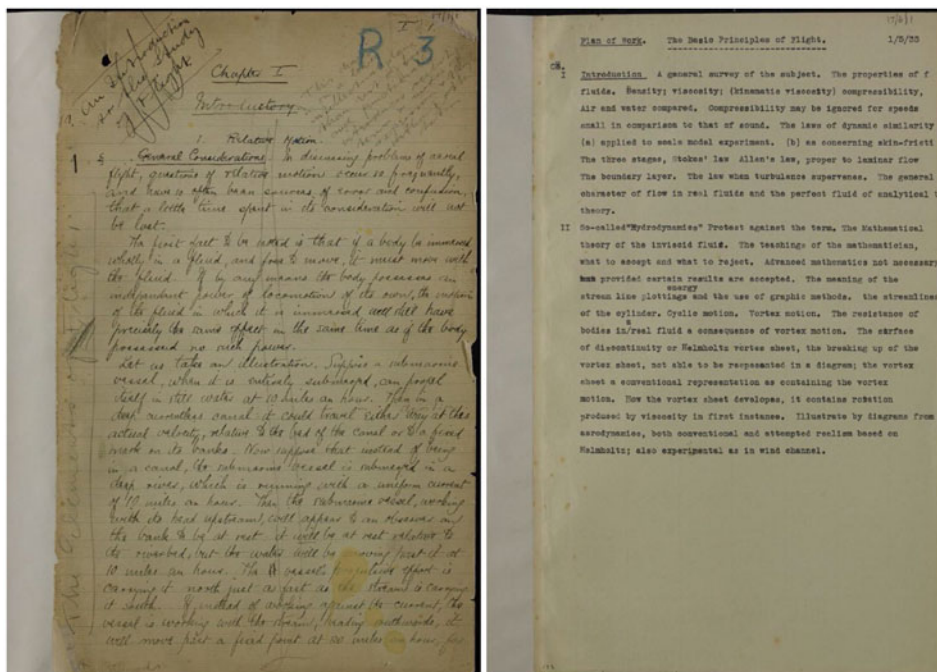 I
R 3
An Introduction
to the Study
of Flight
Chapter I
Introductory
1. Relative Motion.
1 § General Considerations In discussing problems of aerial
flight, questions of relative motion occur so frequently,
and have so often been sources of error and confusion,
that a little time spent in its consideration will not
be lost.
The first fact to be noted is that if a body be immersed
wholly in a fluid, and free to move, it must move with
the fluid. If by any means the body possesses an
independent power of locomotion of its own, the motion
of the fluid in which it is immersed will still have
precisely the same effect in the same time as if the body
possessed no such power.
Let us take an illustration. Suppose a submarine
vessel, when it is entirely submerged, can propel
itself in still water at 10 miles an hour. Then in a
deep currentless canal it could travel either way at this
actual velocity, relative to the bed of the canal or to a fixed
mark on its banks. Now suppose that instead of being
in a canal, the submarine vessel is submerged in a
deep river, which is running with a uniform current
of 10 miles an hour. Then the submarine vessel, working
with its head upstream, will appear to an observer on
the bank to be at rest. it will be at rest relative to
the riverbed, but the water will be moving past it at
10 miles an hour. The vessel's propulsive effort is
carrying it north just as fast as the stream is carrying
it south. If, instead of working against the current, the
vessel is working with the stream, heading southwards, it
will move past a fixed point at 20 miles an hour, for
The Elements of Flight
17/6/1
Plan of Work. The Basic Principles of Flight. 1/5/35
CH.
I Introduction A general survey of the subject. The properties of f
fluids. Density; viscosity; (kinematic viscosity) compressibility,
Air and water compared. Compressibility may be ignored for speeds
small in comparison to that of sound. The laws of dynamic similarity
(a) applied to scale model experiment. (b) as concerning skin-fricti
The three stages, Stokes' law Allen's law, proper to laminar flow
The boundary layer. The law when turbulence supervenes. The general
character of flow in real fluids and the perfect fluid of analytical t
theory.
II So-called"Hydrodynamics" Protest against the term. The Mathematical
theory of the inviscid fluid. The teachings of the mathematician,
what to accept and what to reject. Advanced mathematics not necessary
provided certain results are accepted. The meaning of the
energy
stream line plottings and the use of graphic methods. the streamlines
of the cylinder. Cyclic motion. Vortex motion. The resistance of
a
bodies in/real fluid a consequence of vortex motion. The surface
of discontinuity or Helmholtz vortex sheet, the breaking up of the
vortex sheet, not able to be respesented in a diagram; the vortex
sheet a conventional representation as containing the vortex
motion. How the vortex sheet developes, it contains rotation
produced by viscosity in first instance. Illustrate by diagrams from
aerodynamics, both conventional and attempted realism based on
Helmholtz; also experimental as in wind channel.